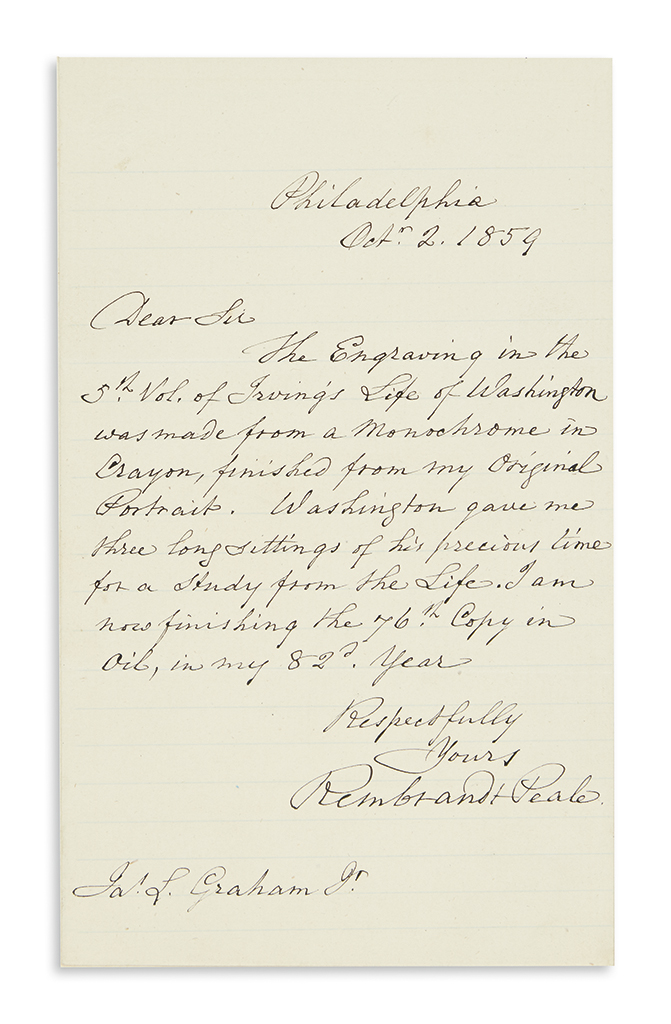 Philadelphia
Octr. 2. 1859
Dear Sir
The Engraving in the
5th. Vol. of Irving's Life of Washington
was made from a Monochrome in
Crayon, finished from my Original
Portrait. Washington gave me
three long sittings of his precious time
for a Study from the Life. I am
now finishing the 76th. Copy in
Oil, in my 82d. Year
Respectfully
Yours
Rembrandt Peale.
Jas. L. Graham Jr.